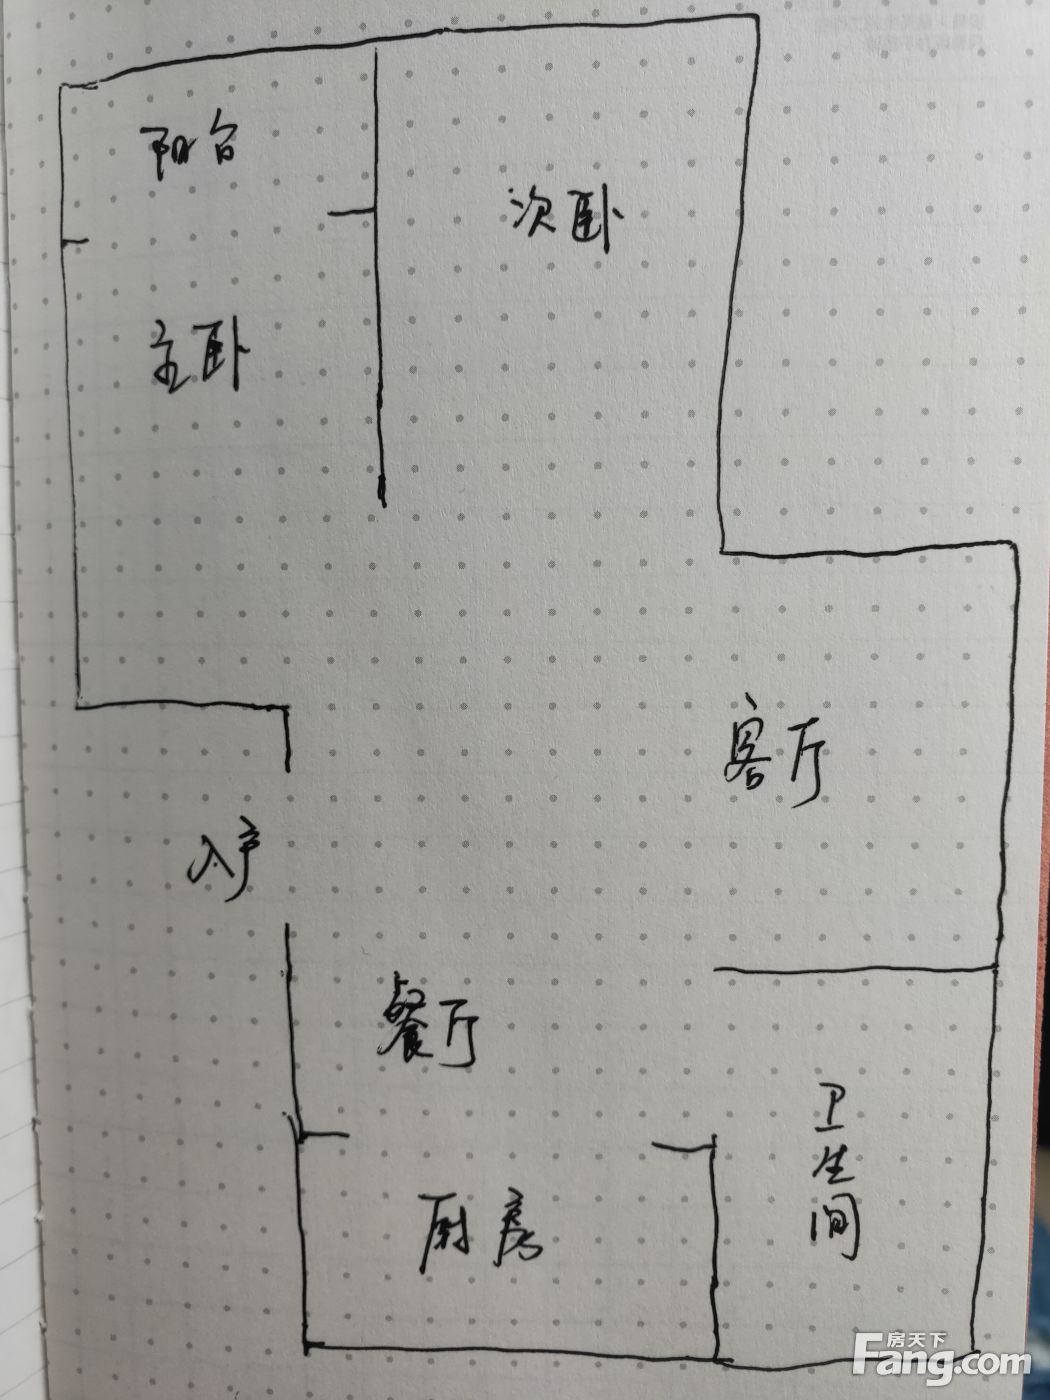 阳台
次卧
主卧
客厅
入户
餐厅
卫生间
厨房
房天下
Fang.com